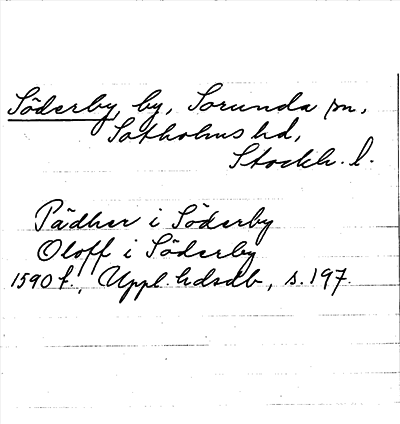 Söderby, by, Sorunda sn,
Sotholms hd,
Stockh. l.
Pädher i Söderby
Oloff i Söderby
1590 t., Uppl. hdsdb, s. 197.